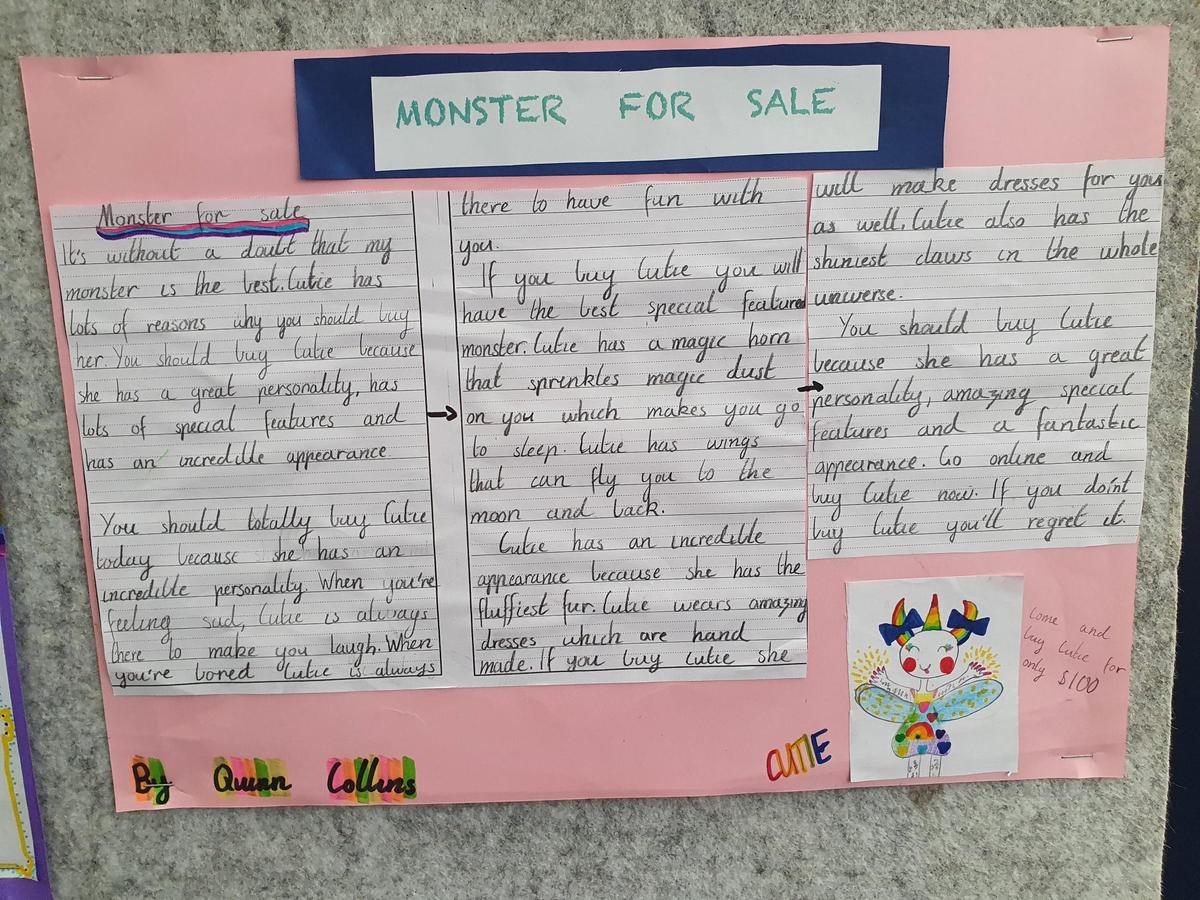 MONSTER FOR SALE
Monster for sale
It's without a doubt that my
monster is the best. Cutie has
lots of reasons why you should buy
her. You should buy Cutie because
she has a great personality, has
lots of special features and
has an incredible appearance
You should totally buy Cutie
today because she has an
incredible personality. When you're
feeling sad, Cutie is always
there to make you laugh. When
you're bored Cutie is always
there to have fun with
you.
If you buy Cutie you will
have the best special featured
monster. Cutie has a magic horn
that sprinkles magic dust
on you which makes you go
to sleep. Cutie has wings
that can fly you to the
moon and back.
Cutie has an incredible
appearance because she has the
fluffiest fur. Cutie wears amazing
dresses which are hand
made. If you buy Cutie she
will make dresses for you
as well. Cutie also has the
shiniest claws in the whole
universe.
You should buy Cutie
because she has a great
personality, amazing special
features and a fantastic
appearance. Go online and
buy Cutie now. If you do'nt
buy Cutie you'll regret it.
Come and
buy Cutie for
only $100
CUTIE
By Quinn Collins